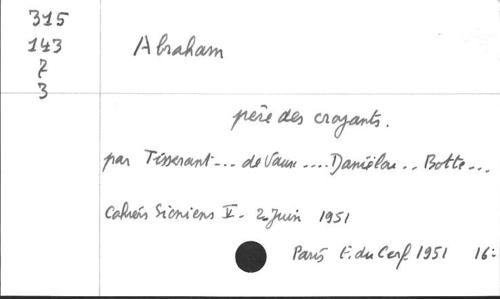 315
143
7
3
Abraham
père des croyants.
par Tisserant... de Vaux .... Daniélou .. Botte...
Cahiers Sioniens V - 2 Juin 1951
Paris E. du Cerf 1951 16: